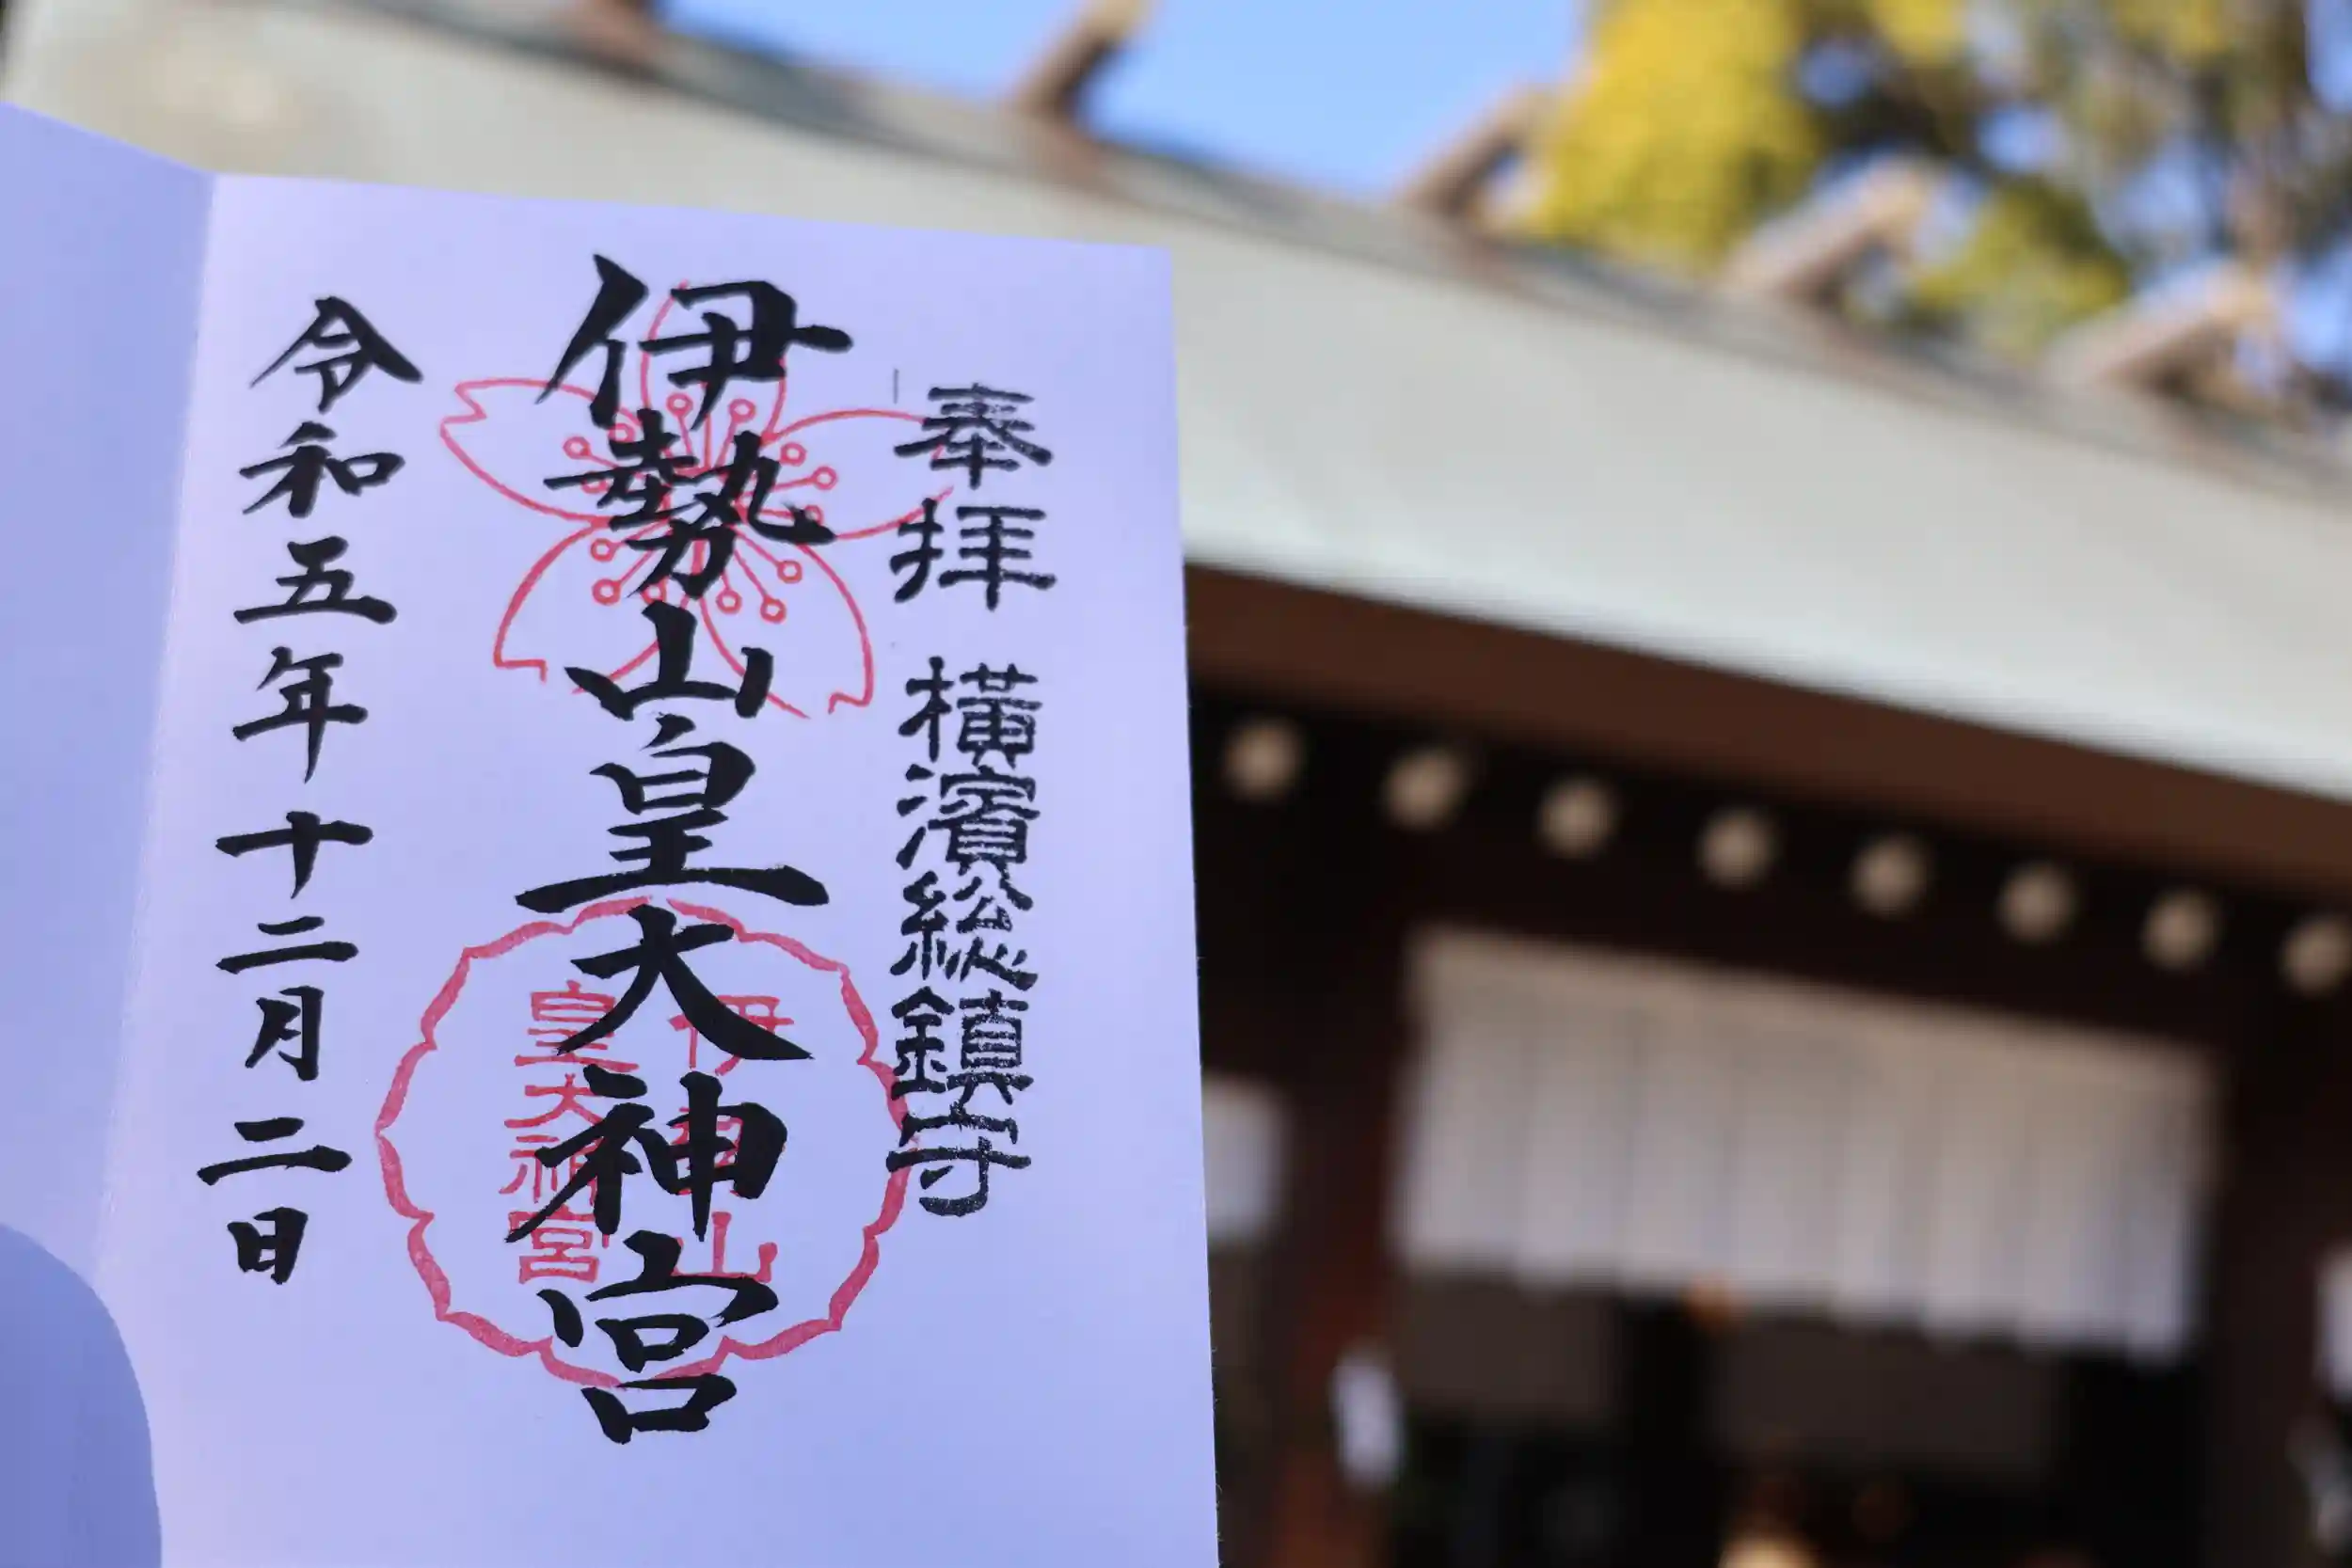 奉拝 横濱総鎮守
伊勢山皇大神宮
令和五年十二月二日
伊勢山
皇大神宮